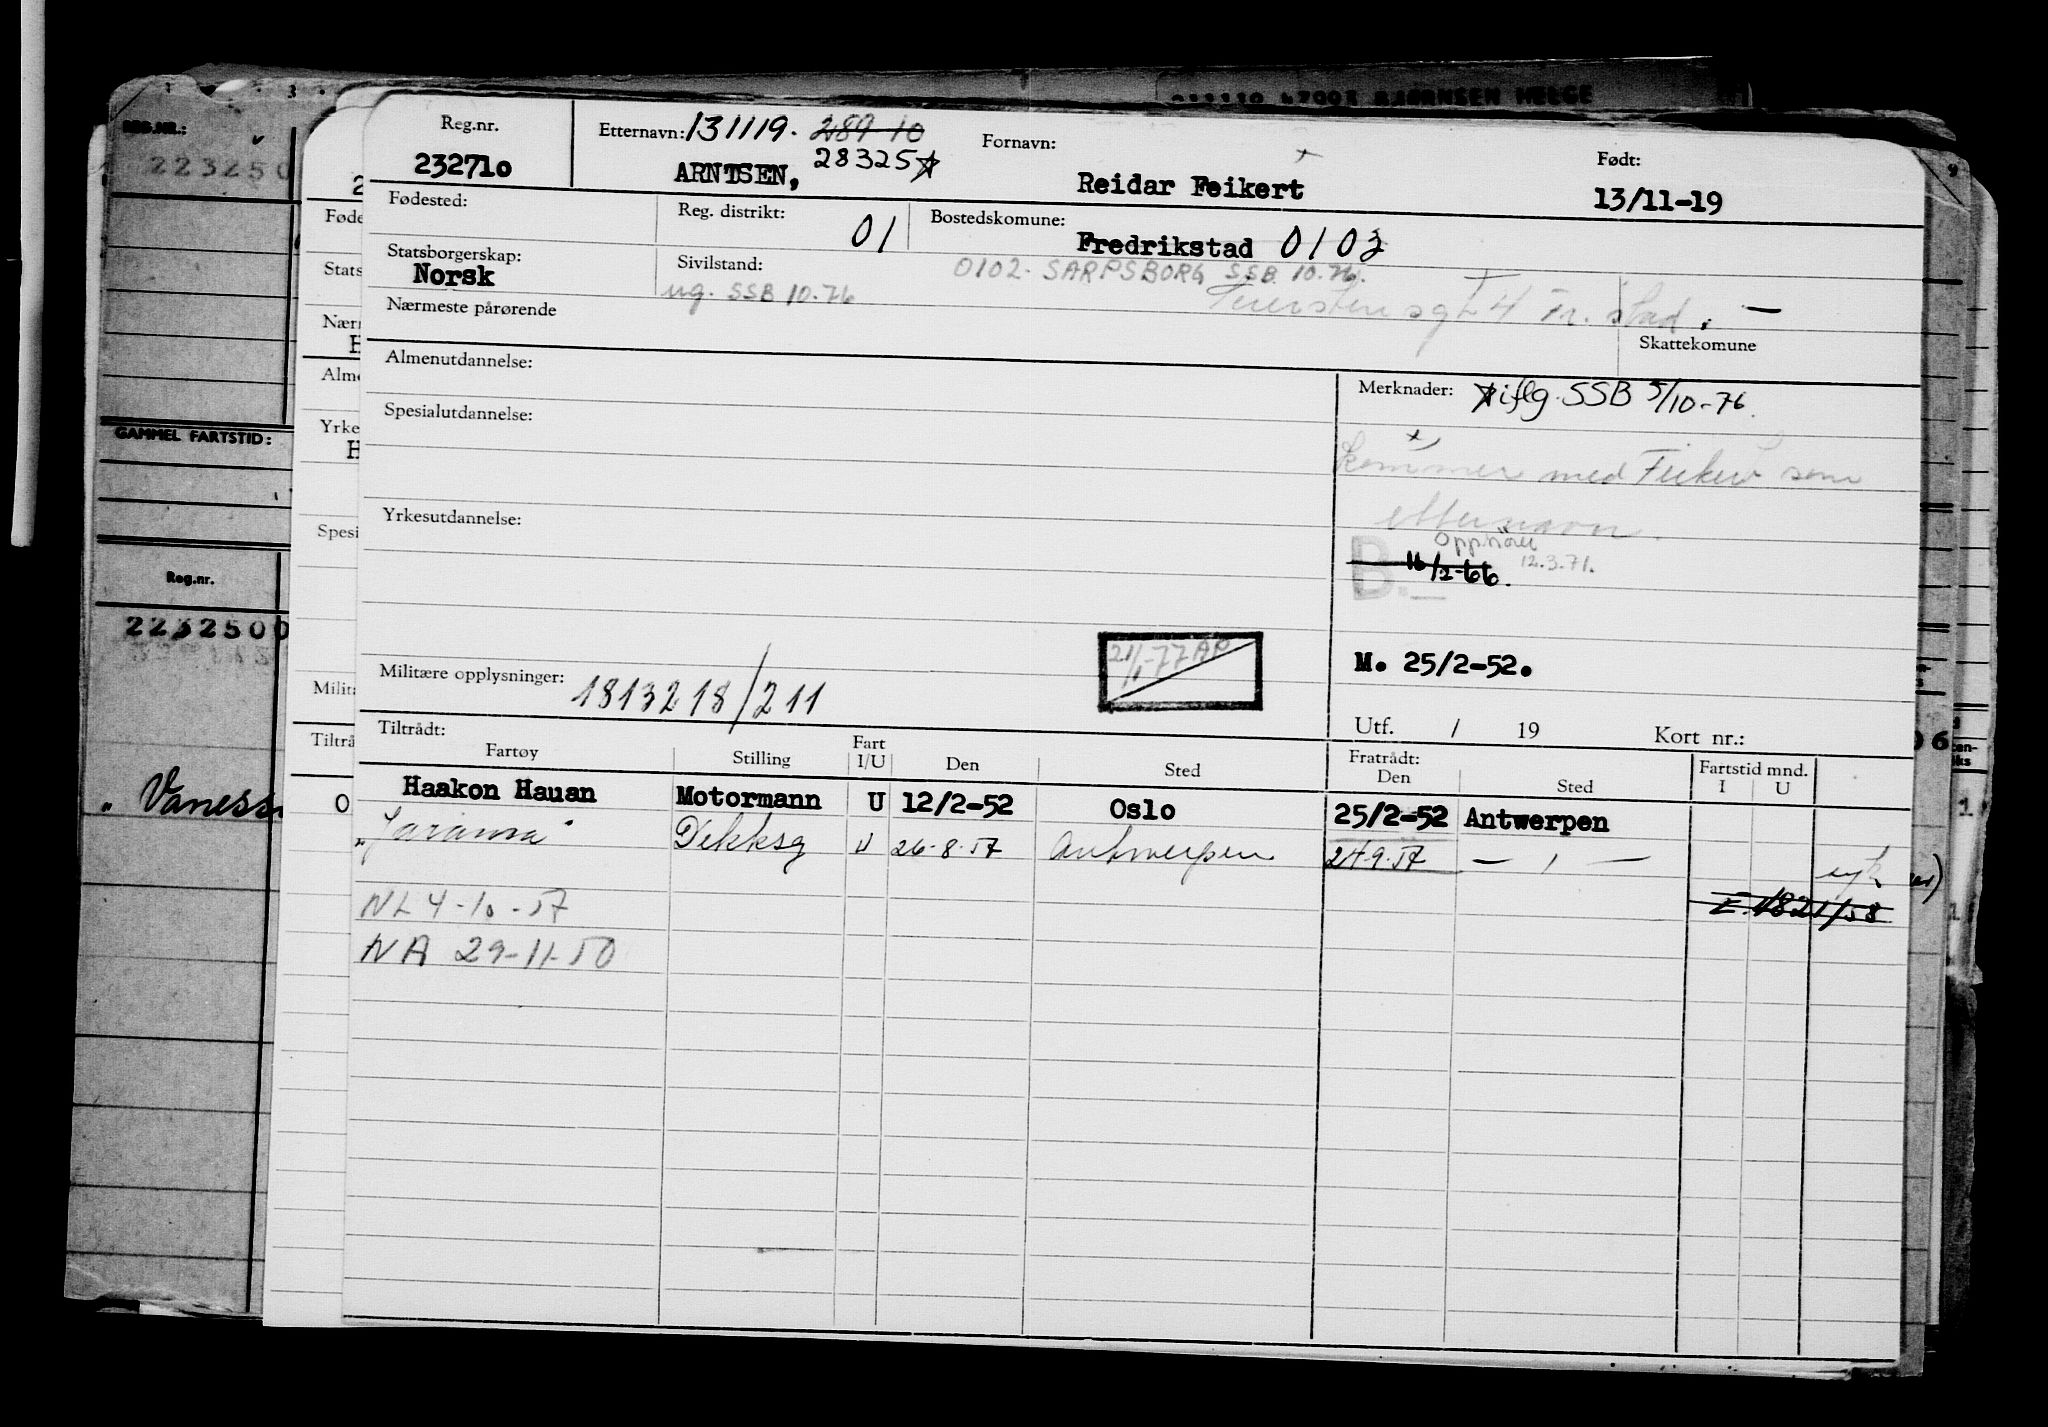 011110 47003 BJØRNSEN HELGE
REG.NR.:
223250
GAMMEL FARTSTID:
Reg.nr.
2232500
" Vaness
Reg.nr.
232710
Etternavn: 131119. 289 10
28325 ☆
ARNTSEN,
Fornavn:
Reidar Feikert
Født:
13/11-19
Fødested:
Reg. distrikt:
01
Bostedskomune:
Fredrikstad 0103
Statsborgerskap:
Norsk
Sivilstand:
ug. SSB 10.76
0102. SARPSBORG SSB 10.76.
4 Fr. stad.
Nærmeste pårørende
Skattekomune
Almenutdannelse:
Merknader: ☆ iflg. SSB 5/10-76.
Spesialutdannelse:
kommer med som
etternavn.
Yrkesutdannelse:
Opphører
B. 16/2-66. 12.3.71.
Militære opplysninger:
1813218/211
21/1-77 AP
M. 25/2-52.
Utf. / 19 Kort nr.:
Tiltrådt:
Fartøy Stilling Fart I/U Den Sted Fratrådt: Den Sted Fartstid mnd. I U
Haakon Hauan Motormann U 12/2-52 Oslo 25/2-52 Antwerpen
"Jarama" Dekksg U 26-8-57 Antwerpen 24-9-57 — " —
NL 4-10-57
NA 29-11-50